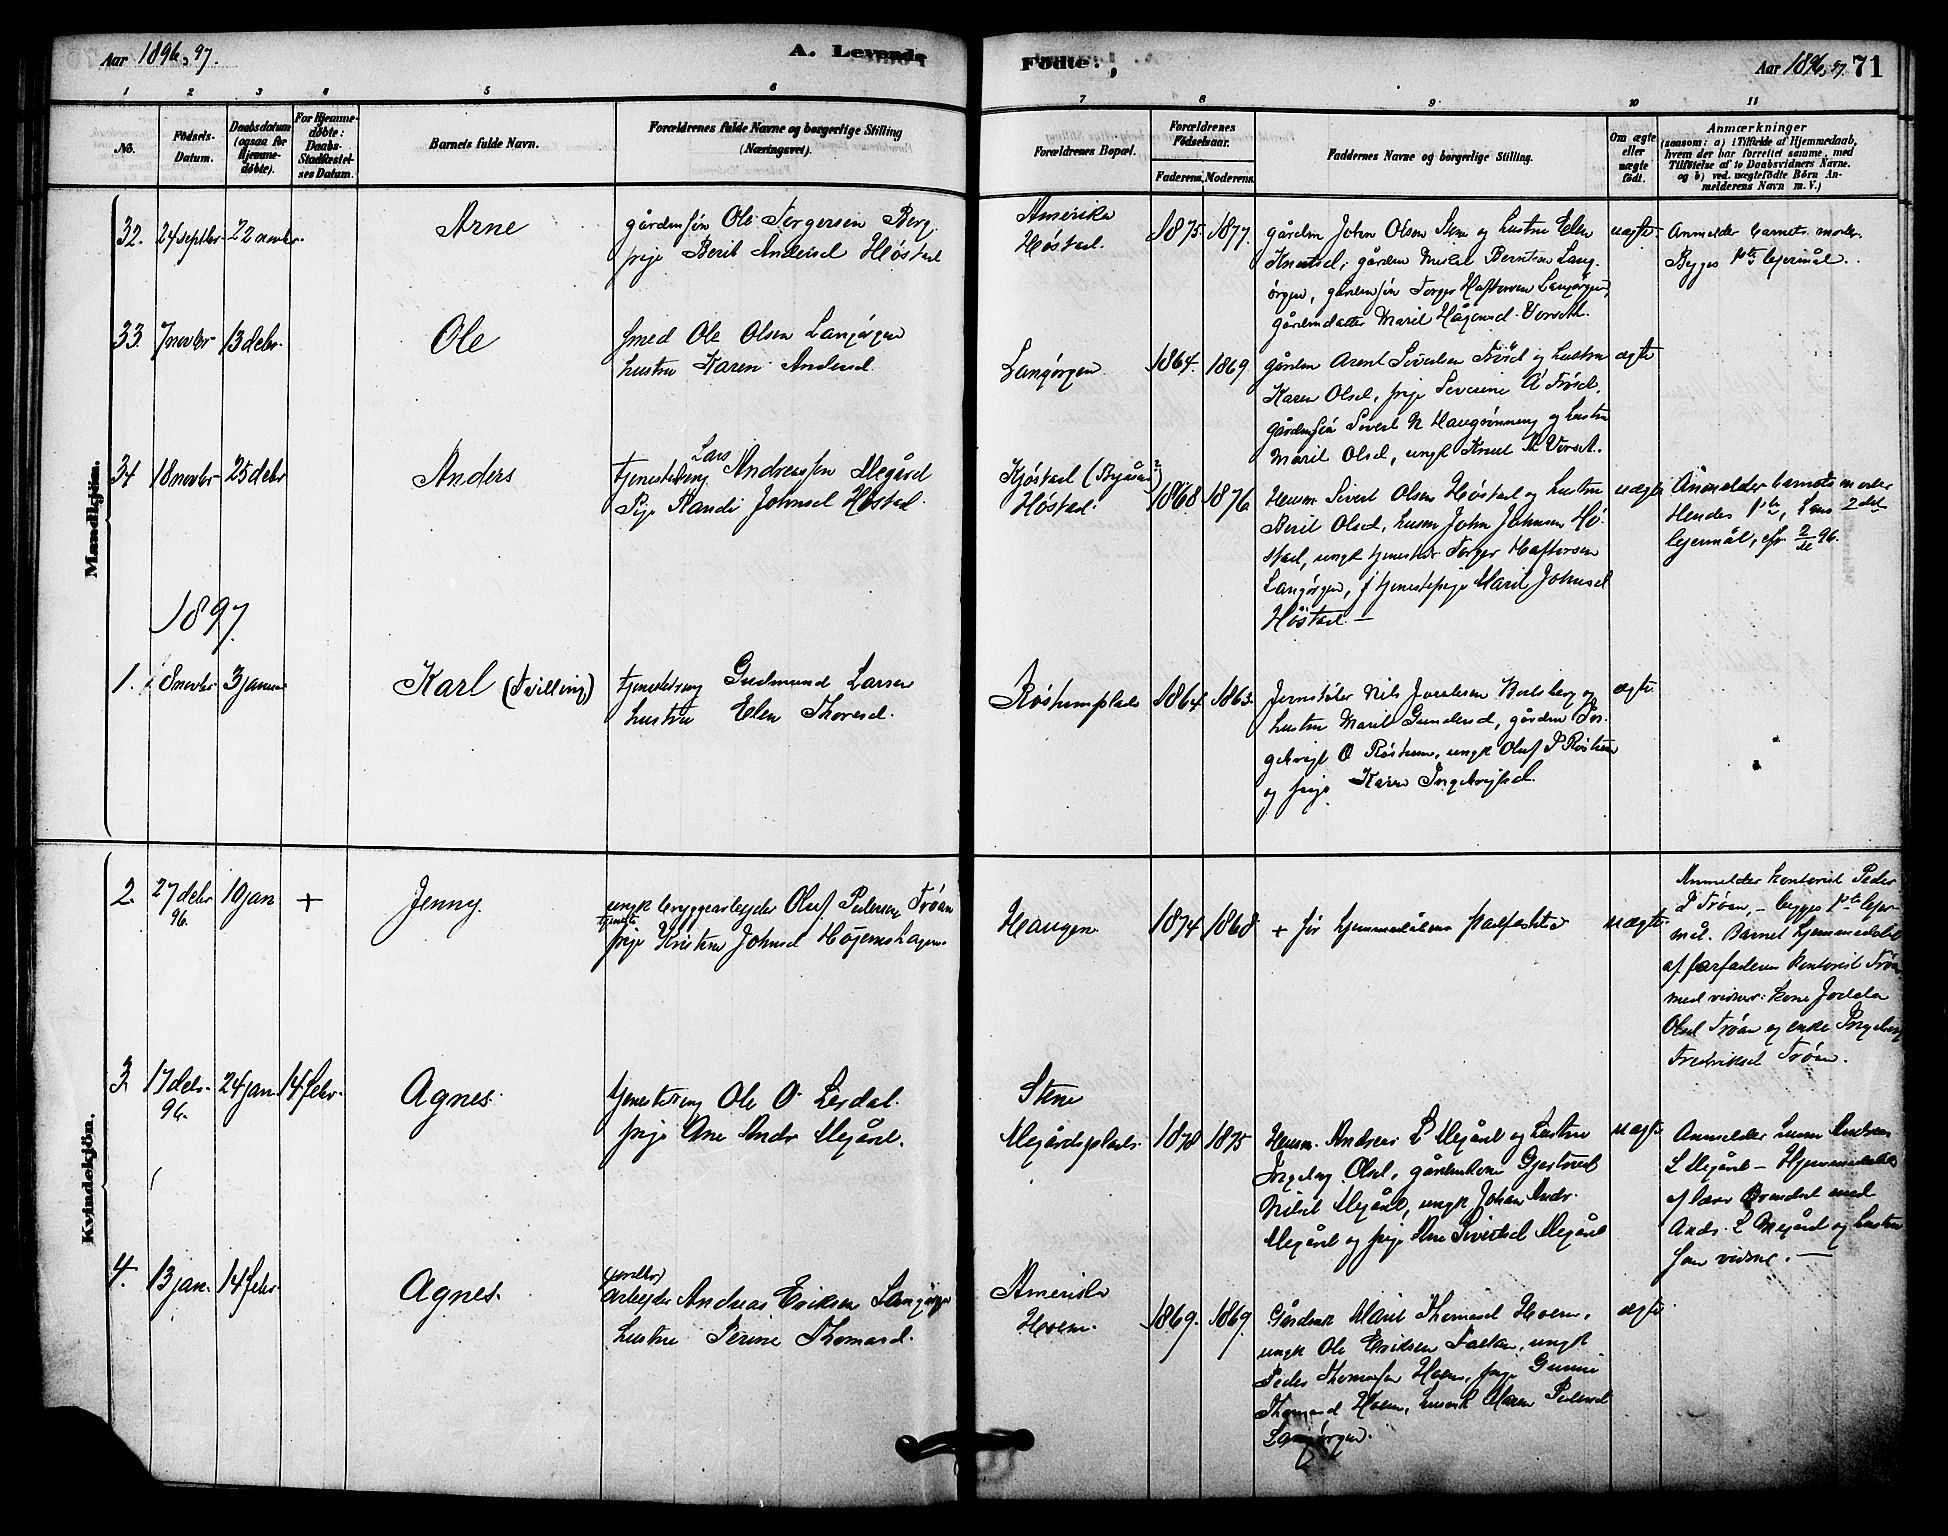 Aar 1896, 97.
A. Levende
Fødte.,
Aar 1896, 97. 71
1 2 3 4 5 6 7 8 9 10 11
No.
Fødsels-
Datum.
Daabsdatum
(ogsaa for
Hjemme-
døbte).
For Hjemme-
døbte:
Daabs-
Stadfæstel-
ses Datum.
Barnets fulde Navn.
Forældrenes fulde Navne og borgerlige Stilling
(Næringsvei).
Forældrenes Bopæl.
Forældrenes
Fødselsaar.
Faderens. Moderens.
Faddernes Navne og borgerlige Stilling.
Om ægte
eller
uægte
født.
Anmærkninger
(saasom: a) i Tilfælde af Hjemmedaab,
hvem der har forrettet samme, med
Tilføielse af to Daabsvidners Navne.
og b) ved uægtefødte Børn An-
melderens Navn m. V.)
Mandkjön.
32. 24 septbr 22 novbr. Arne
gårdmsøn Ole Torgersen Berg
pige Berit Andersd Høstad
Amerika
Høstad.
1875. 1877.
gårdm John Olsen Stene og hustru Elen
Knutsd, gårdm Mikal Berntsen Lang-
ørgen, gårdmsøn Torger Haftorsen Langørgen,
gårdmdatter Marit Hågensd
uægte.
Anmelder barnets moder.
Begges 1ste lejermål.
33. 7 novbr 13 debr. Ole
smed Ole Olsen Langørgen
hustru Karen Andersd.
Langørgen
1864. 1869
gårdm Arnt Sivertsen Trøst og hustru
Karen Olsd, pige Severine A Trøst,
gårdmsøn Sivert N Haugrønning og hustru
Marit Olsd, ungk Knut
ægte
34 18 novbr 25 debr Anders
tjenestedreng Lars Andreassen Megård
Pige Randi Johnsd Høstad.
Kjøstad
Høstad.
1868 1876
Husm Sivert Olsen Høstad og hustru
Berit Olsd, husm John Johnsen Hø-
stad, ungk tjenestekar Torger Haftorsen
Langørgen, tjenestepige Marit Johnsd
Høstad.
uægte
Anmelder barnets moder
Hendes 1ste, hans 2det
lejermål, 96.
1897.
1. 8 novbr 3 januar Karl (Tvilling)
tjenestedreng Gudmund Larsen
hustru Elen Thoresd.
Røstumplads
1864 1863.
Nils
hustru Marit Gundersd, gårdm In-
gebrigt O Røstum, ungk Oluf I Røstum
og pige Karen Ingebrigtsd.
ægte
Kvindekjön.
2. 27 debr 10 jan + Jenny.
96.
ungk bryggearbejder Oluf Pedersen Trøan
tjeneste
pige Kristine Johnsd Højemshagen.
Haugen
1874 1868
+ før hjemmedåbens stadfæstelse
uægte.
Anmelder kontorist Peder
P Trøan, – begges 1ste lejer-
mål. Barnet hjemmedøbt
af farfaderen kontorist Trøan
med vidner: kone Jodda
Olsd Trøan og enke Ingeborg
Fredriksd Trøan.
3. 17 debr. 24 jan. 14 febr. Agnes.
96.
tjenestedreng Ole O. Lerdal.
pige Ane Andr Megård.
Stene
Megårdsplads.
1878 1875
Husm. Andreas L Megård og hustru
Ingeborg Olsd, gårdmkone Gjertrud
Nilsd Megård, ungk Johan Andr.
Megård og pige Ane Sivertsd Megård
uægte
Anmelder husm Andreas
L Megård – Hjemmedøbt
af lærer med
Andr. L Megård og hustru
som vidne. –
4. 13 jan. 14 febr. Agnes.
arbejder Andreas Eriksen Langørgen
hustru Perine Thomasd.
Amerika
Hoem.
1869. 1869.
Gårdmk Marit Thomasd Hoem,
ungk Ole Eriksen ungk
Peder Thomassen Hoem, pige Gunni
Thomasd Hoem, husmk Maren Pedersd
Langørgen.
ægte